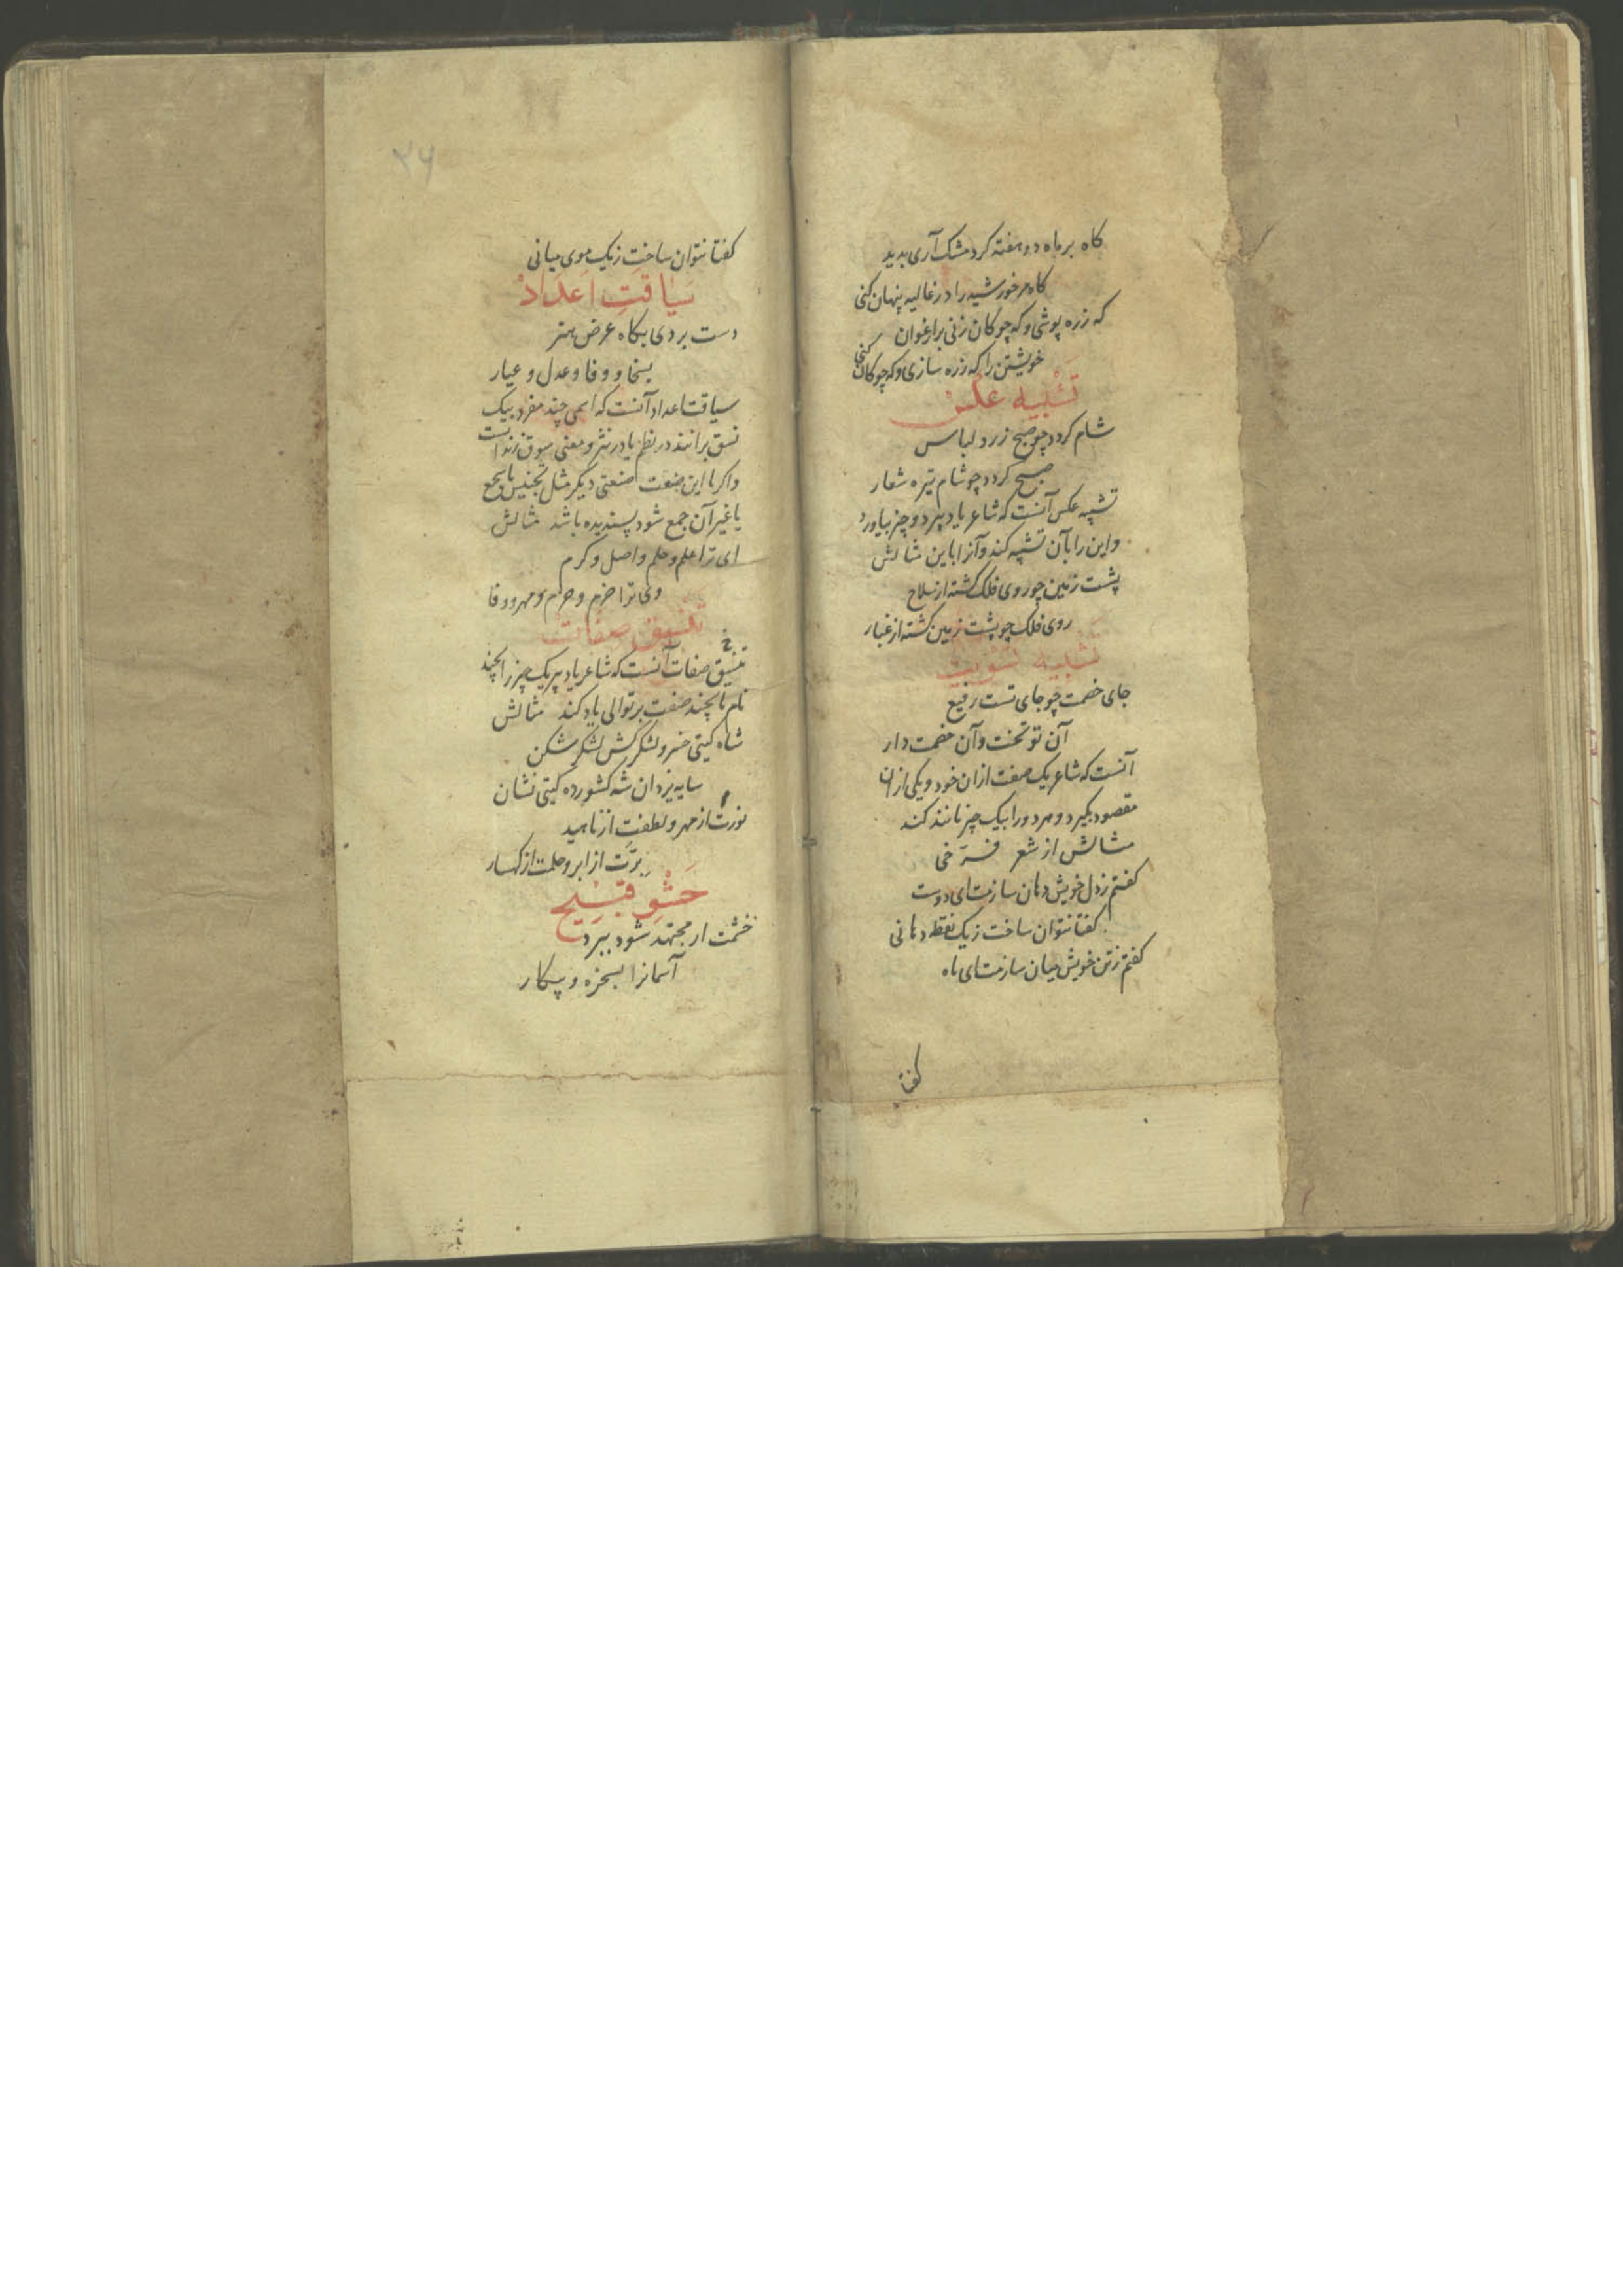 کاه بر ماه دو هفته کرد مشک آری بدید
کاه مر خورشید را در غالیه پنهان کنی
که زره پوشی و که چوکان زنی بر ارغوان
خویشتن را که زره سازی و که چوکان کنی
تشبیه عکس
شام کردد چو صبح زرد لباس
صبح کردد چو شام تیره شعار
تشبیه عکس آنست که شاعر یا دبیر دو چیز بیاورد
و این را بآن تشبیه کند و آنرا باین مثالش
پشت زمین چو روی فلک کشته از سلاح
روی فلک چو پشت زمین کشته از غبار
تشبیه تسویت
جای خصمت چو جای تست رفیع
آن تو تخت و آن خصمت دار
آنست که شاعر یک صفت ازان خود و یکی ازان
مقصود بگیرد و هر دو را بیک چیز مانند کند
مثالش از شعر فرّخی
کفتم ز دل خویش دهان سازمت ای دوست
کفتا نتوان ساخت ز یک نقطه دهانی
کفتم ز تن خویش میان سازمت ای ماه
کفتا
۳۶
کفتا نتوان ساخت ز یک موی میانی
سیاقت اعداد
دست بردی بکاه عرض هنر
بسخا و وفا و عدل و عیار
سیاقت اعداد آنست که اسمی چند مفرد بیک
نسق برانند در نظم یا در نثر و معنی سوق زند است
و اکر با این صنعت صنعتی دیکر مثل تجنیس یا سجع
یا غیر آن جمع شود پسندیده باشد مثالش
ای ترا علم و حلم و اصل و کرم
وی ترا حزم و جزم و مهر و وفا
تنسیق صفات
تنسیق صفات آنست که شاعر یا دبیر یک چیز را بچند
نام یا بچند صفت بر توالی یاد کند مثالش
شاه کیتی خسرو لشکرکش لشکرشکن
سایه یزدان شه کشورده کیتی نشان
نورت از مهر و لطفت از ناهید
برّت از ابر و حلمت از کهسار
حشو قبیح
خشمت ار مجتهد شود ببرد
آسمانرا بسخره و پیکار